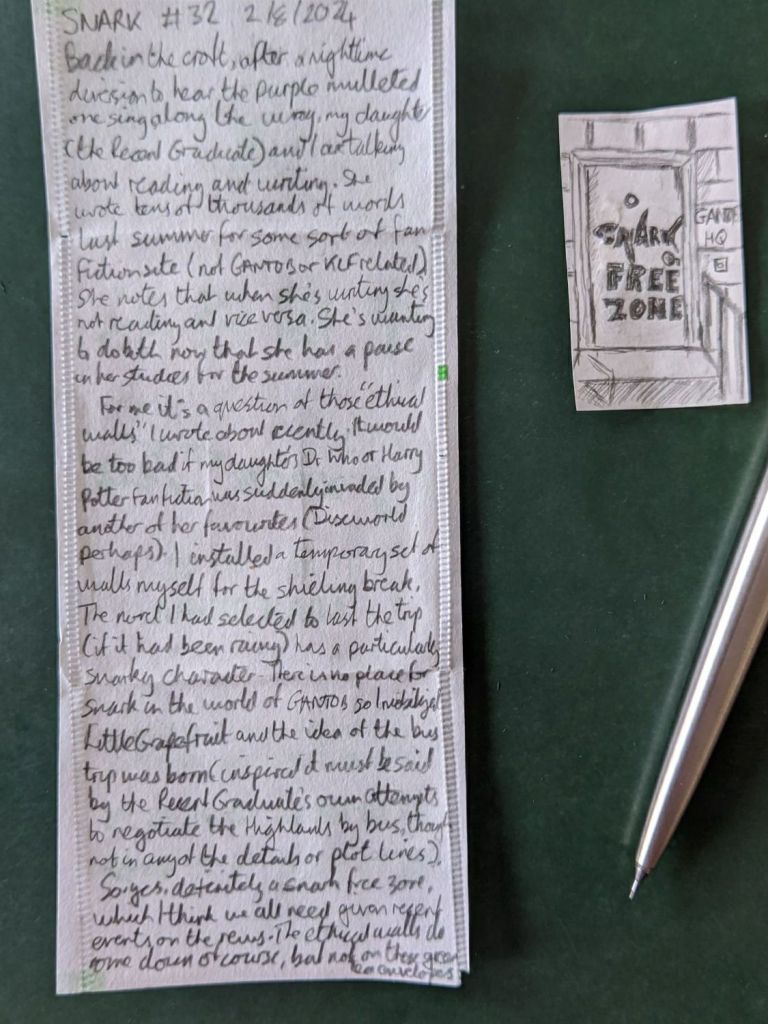 SNARK #32 2/8/2024
Back in the croft, after a nighttime
diversion to hear the purple mulleted
one sing along the way, my daughter
(the Recent Graduate) and I are talking
about reading and writing. She
wrote tens of thousands of words
last summer for some sort of fan
fiction site (not GANTOB or KLF related).
She notes that when she's writing she's
not reading and vice versa. She's wanting
to do both now that she has a pause
in her studies for the summer.
For me it's a question of those "ethical
walls" I wrote about recently. It would
be too bad if my daughter's Dr Who or Harry
Potter fan fiction was suddenly invaded by
another of her favourites (Discworld
perhaps). I installed a temporary set of
walls myself for the shieling break.
The novel I had selected to last the trip
(if it had been rainy) has a particularly
snarky character. There is no place for
snark in the world of GANTOB so I mobilized
Little Grapefruit and the idea of the bus
trip was born (inspired it must be said
by the Recent Graduate's own attempts
to negotiate the Highlands by bus, though
not in any of the details or plot lines).
So yes, definitely a snark free zone,
which I think we all need given recent
events on the news. The ethical walls do
come down of course, but not on these green
envelopes
SNARK
FREE
ZONE
HQ